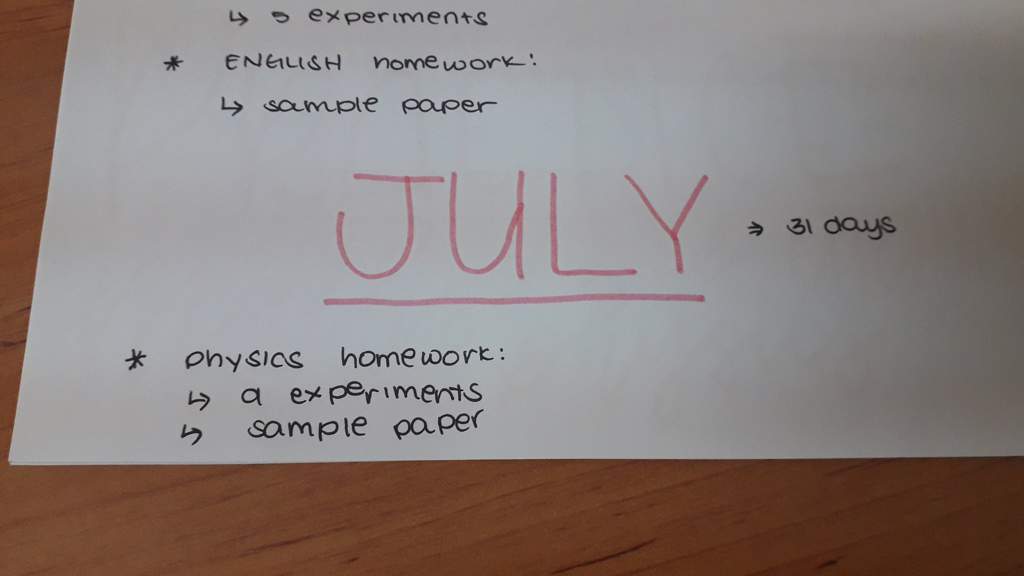 ↳ 5 experiments
* ENGLISH homework:
↳ sample paper
JULY → 31 days
* physics homework:
↳ 9 experiments
↳ sample paper